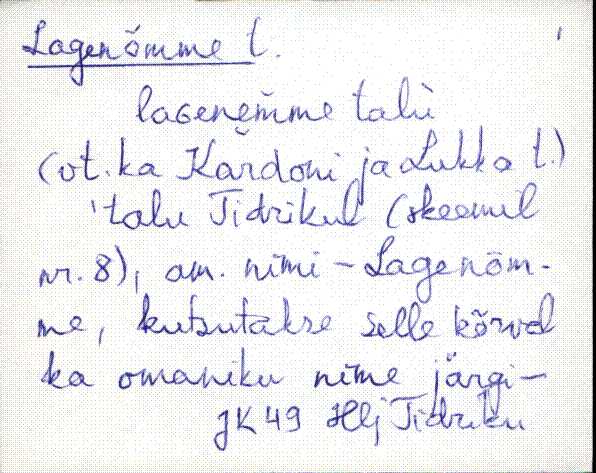 Lagenõmme t.
laGenẹm̆me talù
(vt. ka Kardoni ja Lukka t.)
'talu Tidrikul (skeemil
nr. 8), am. nimi – Lagenõm-
me, kutsutakse selle kõrval
ka omaniku nime järgi –
JK 49 Hlj Tidriku